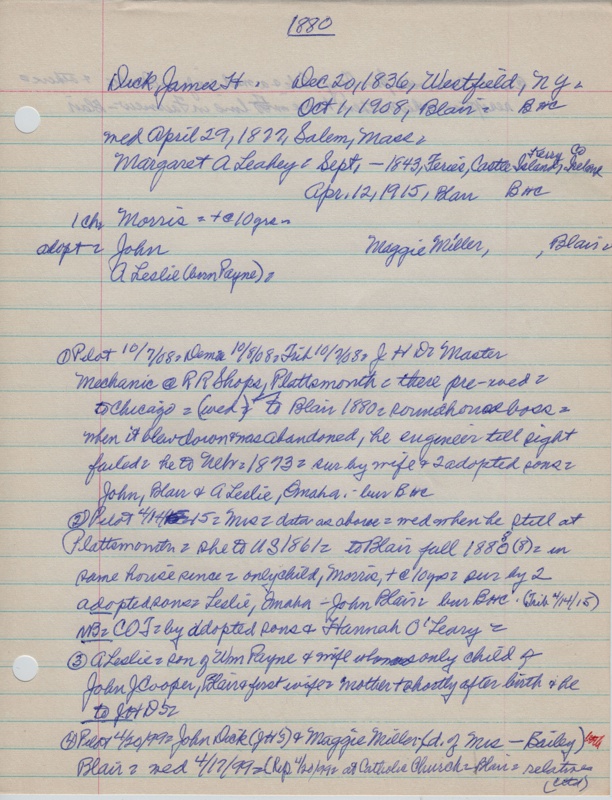 1880
Dick, James H. Dec 20, 1836, Westfield, NY =
Oct 1, 1908, Blair = BHC
wed April 29, 1877, Salem, Mass =
Margaret A Leahey = Sept, - 1843, Feries, Castle Island, Kerry Co Ireland
Apr. 12, 1915, Blair BHC
1 ch Morris = + c 10 yrs =
adopt = John Maggie Miller, , Blair =
A Leslie (born Payne) =
① Pilot 10/7/08 = Demo 10/8/08 = Trib 10/7/08 = J H D = Master
Mechanic @ RR Shops, Plattsmouth = there pre-wed =
to Chicago = (wed) = to Blair 1880 = roundhouse boss =
when it blew down & was abandoned, he engineer till sight
failed = he to Neb = 1873 = sur by wife & 2 adopted sons =
John, Blair & A Leslie, Omaha. - bur BHC
② Pilot 4/14/15 = Mrs = data as above = wed when he still at
Plattsmouth = she to US 1861 = to Blair fall 1880 (8) = in
same house since = only child, Morris, + c 10 yrs = sur by 2
adopted sons = Leslie, Omaha - John Blair = bur BHC. (Trib 4/14/15)
NB = COT = by adopted sons & Hannah O'Leary =
③ A Leslie = son of Wm Payne & wife who was only child of
John J Cooper, Blair & first wife = mother + shortly after birth & he
to JHDs =
④ Pilot 4/20/99 = John Dick (JHS) & Maggie Miller (d. of Mrs - Bailey) both
Blair = wed 4/17/99 = (Rep 4/20/99 = at Catholic Church = Blair = relatives
(Ctd)